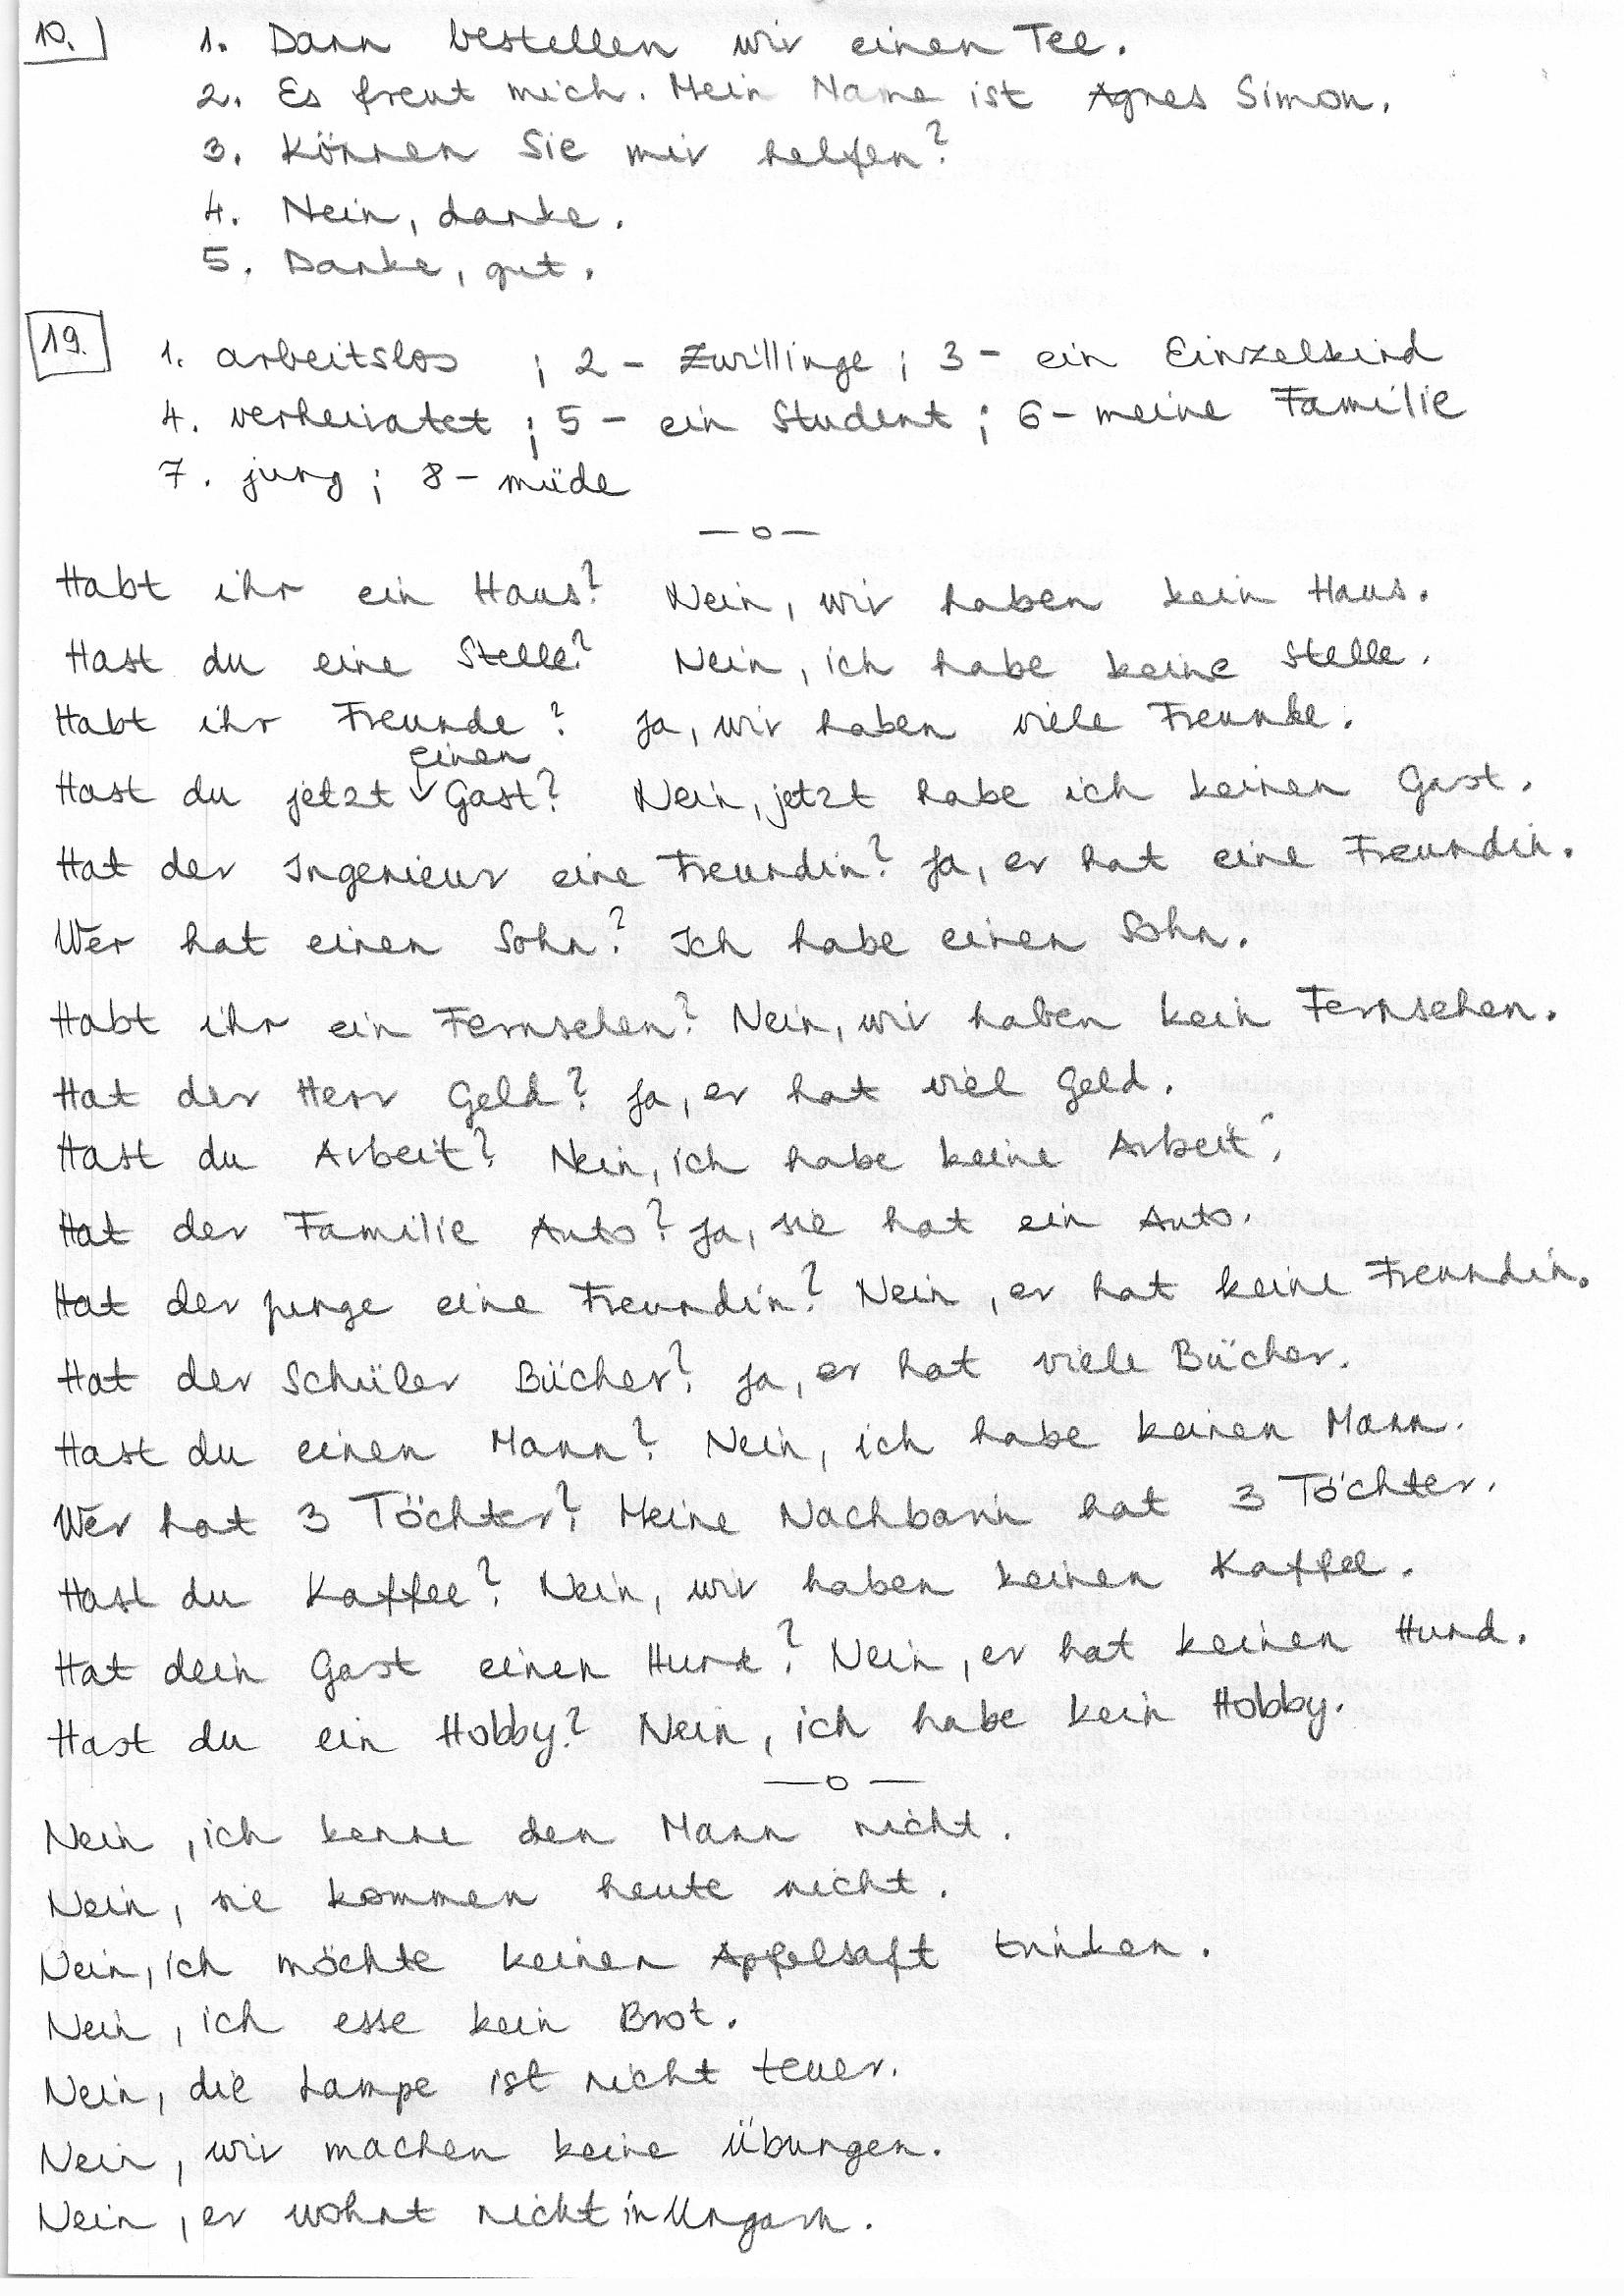 10.
1. Dann bestellen wir einen Tee.
2. Es freut mich. Mein Name ist Agnes Simon.
3. Können Sie mir helfen?
4. Nein, danke.
5. Danke, gut.
19.
1. arbeitslos ; 2 - Zwillinge ; 3 - ein Einzelkind
4. verheiratet ; 5 - ein Student ; 6 - meine Familie
7. jung ; 8 - müde
—o—
Habt ihr ein Haus? Nein, wir haben kein Haus.
Hast du eine Stelle? Nein, ich habe keine Stelle.
Habt ihr Freunde? Ja, wir haben viele Freunde.
Hast du jetzt einen Gast? Nein, jetzt habe ich keinen Gast.
Hat der Ingenieur eine Freundin? Ja, er hat eine Freundin.
Wer hat einen Sohn? Ich habe einen Sohn.
Habt ihr ein Fernsehen? Nein, wir haben kein Fernsehen.
Hat der Herr Geld? Ja, er hat viel Geld.
Hast du Arbeit? Nein, ich habe keine Arbeit.
Hat der Familie Auto? Ja, sie hat ein Auto.
Hat der Junge eine Freundin? Nein, er hat keine Freundin.
Hat der Schüler Bücher? Ja, er hat viele Bücher.
Hast du einen Mann? Nein, ich habe keinen Mann.
Wer hat 3 Töchter? Meine Nachbarin hat 3 Töchter.
Hast du Kaffee? Nein, wir haben keinen Kaffee.
Hat dein Gast einen Hund? Nein, er hat keinen Hund.
Hast du ein Hobby? Nein, ich habe kein Hobby.
—o—
Nein, ich kenne den Mann nicht.
Nein, sie kommen heute nicht.
Nein, ich möchte keinen Apfelsaft trinken.
Nein, ich esse kein Brot.
Nein, die Lampe ist nicht teuer.
Nein, wir machen keine Übungen.
Nein, er wohnt nicht in Ungarn.